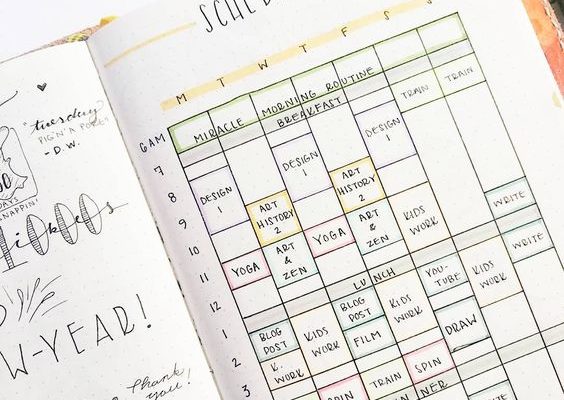 "tuesday
PIG'N A POKE"
-D.W.
DAYS
SNAPPIN!
W-YEAR!
Thank
you!
SCHED
M T W T F S S
6AM
MIRACLE MORNING ROUTINE
BREAKFAST
TRAIN
TRAIN
7
DESIGN
1
DESIGN
1
DESIGN
1
8
ART
HISTORY
2
ART
HISTORY
2
WRITE
9
KIDS
WORK
10
YOGA
ART
&
ZEN
YOGA
ART
&
ZEN
WRITE
11
LUNCH
YOU-
TUBE
KIDS
WORK
12
BLOG
POST
KIDS
WORK
BLOG
POST
KIDS
WORK
DRAW
1
K.
WORK
FILM
2
SPIN
TRAIN
SPIN
3
NER